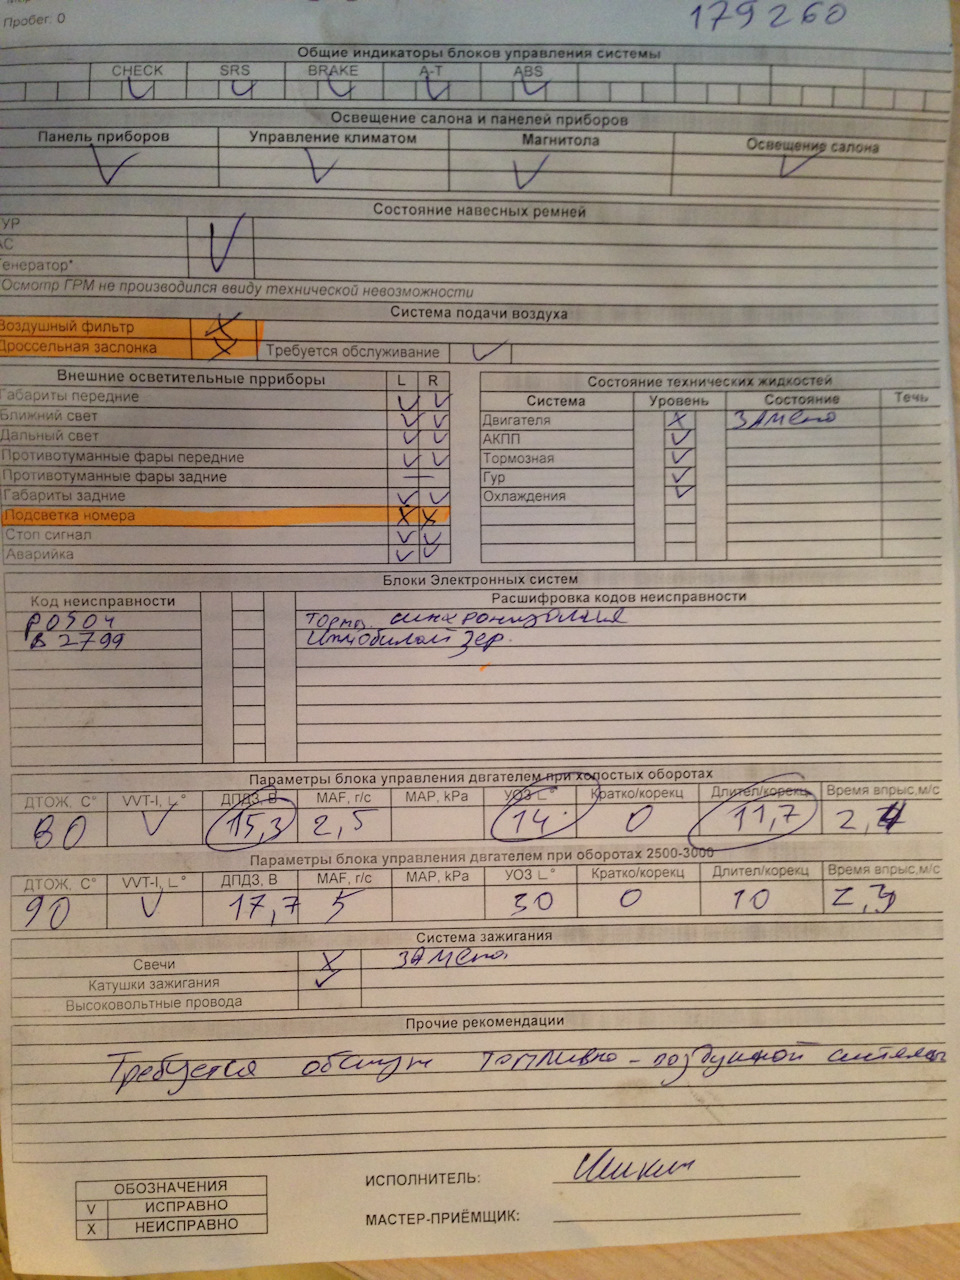 Пробег: 0
179260
Общие индикаторы блоков управления системы
CHECK SRS BRAKE A-T ABS
V V V V V
Освещение салона и панелей приборов
Панель приборов Управление климатом Магнитола Освещение салона
V V V V
Состояние навесных ремней
УР
АС V
Генератор*
Осмотр ГРМ не производился ввиду технической невозможности
Система подачи воздуха
Воздушный фильтр X
Дроссельная заслонка X Требуется обслуживание V
Внешние осветительные прриборы L R
Габариты передние V V
Ближний свет V V
Дальный свет V V
Противотуманные фары передние V V
Противотуманные фары задние —
Габариты задние V V
Подсветка номера X X
Стоп сигнал V V
Аварийка V V
Состояние технических жидкостей
Система Уровень Состояние Течь
Двигателя X ЗАМЕНА
АКПП V
Тормозная V
Гур V
Охлаждения V
Блоки Электронных систем
Код неисправности Расшифровка кодов неисправности
P0504 Тормо. синхронизация
B2799 Иммобилайзер.
Параметры блока управления двгателем при холостых оборотах
ДТОЖ, С° VVT-I, L° ДПДЗ, В MAF, г/с MAP, kPa УОЗ L° Кратко/корекц Длител/корекц Время впрыс,м/с
80 V 15,3 2,5 14 0 11,7
Параметры блока управления двгателем при оборотах 2500-3000
ДТОЖ, С° VVT-I, L° ДПДЗ, В MAF, г/с MAP, kPa УОЗ L° Кратко/корекц Длител/корекц Время впрыс,м/с
90 V 17,7 5 30 0 10 2,3
Система зажигания
Свечи X ЗАМЕНА
Катушки зажигания V
Высоковольтные провода
Прочие рекомендации
Требуется обслуж топливно-воздушной системы
ОБОЗНАЧЕНИЯ
V ИСПРАВНО
X НЕИСПРАВНО
ИСПОЛНИТЕЛЬ:
МАСТЕР-ПРИЁМЩИК: